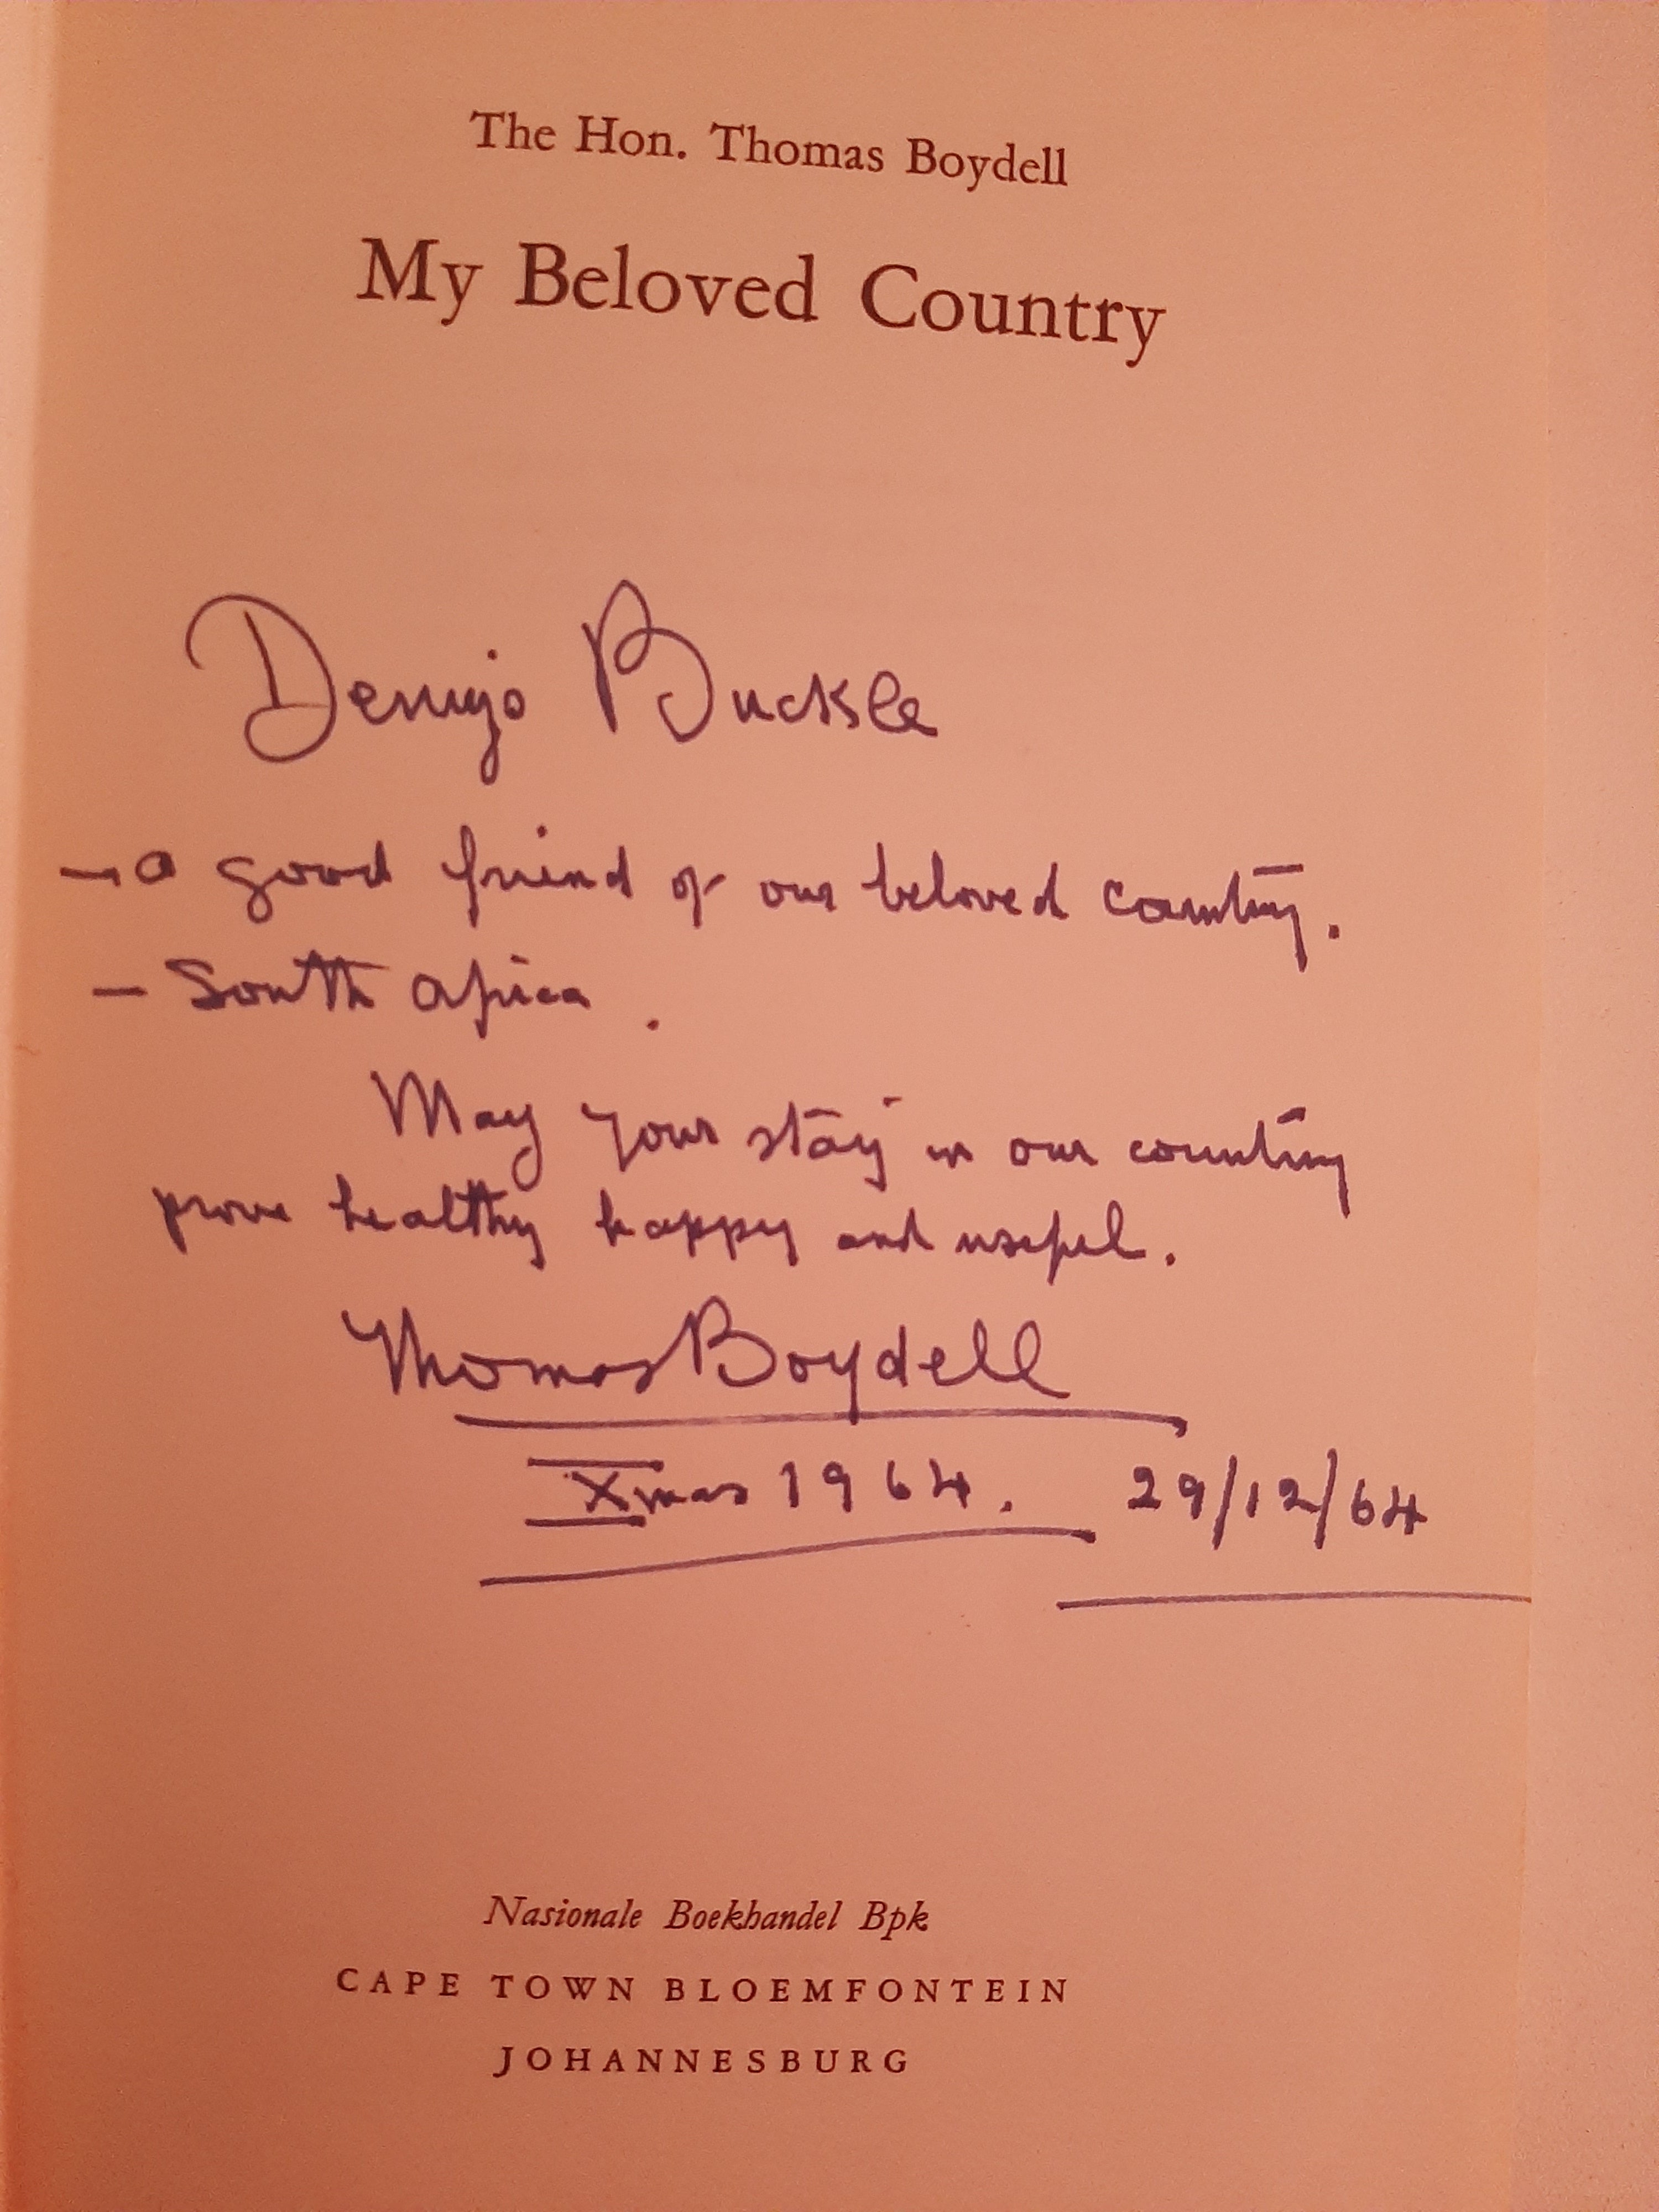 The Hon. Thomas Boydell
My Beloved Country
Buckle
– a good friend of our beloved country.
– South Africa.
May your stay in our country
prove healthy happy and useful.
Thomas Boydell
Xmas 1964. 29/12/64
Nasionale Boekhandel Bpk
CAPE TOWN BLOEMFONTEIN
JOHANNESBURG